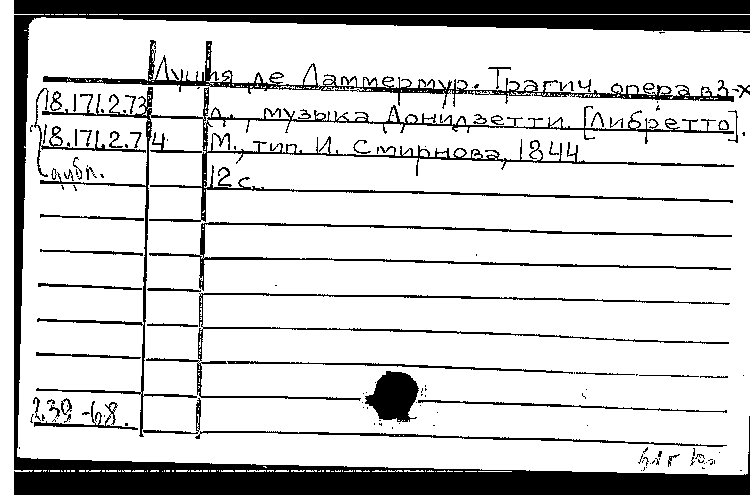 Луция де Ламмермур. Трагич. опера в 3-х
18.171.2.73 д., музыка Донидзетти. [Либретто].
18.171.2.74 М., тип. И. Смирнова, 1844.
дубл. 12 с.
2.39-68.